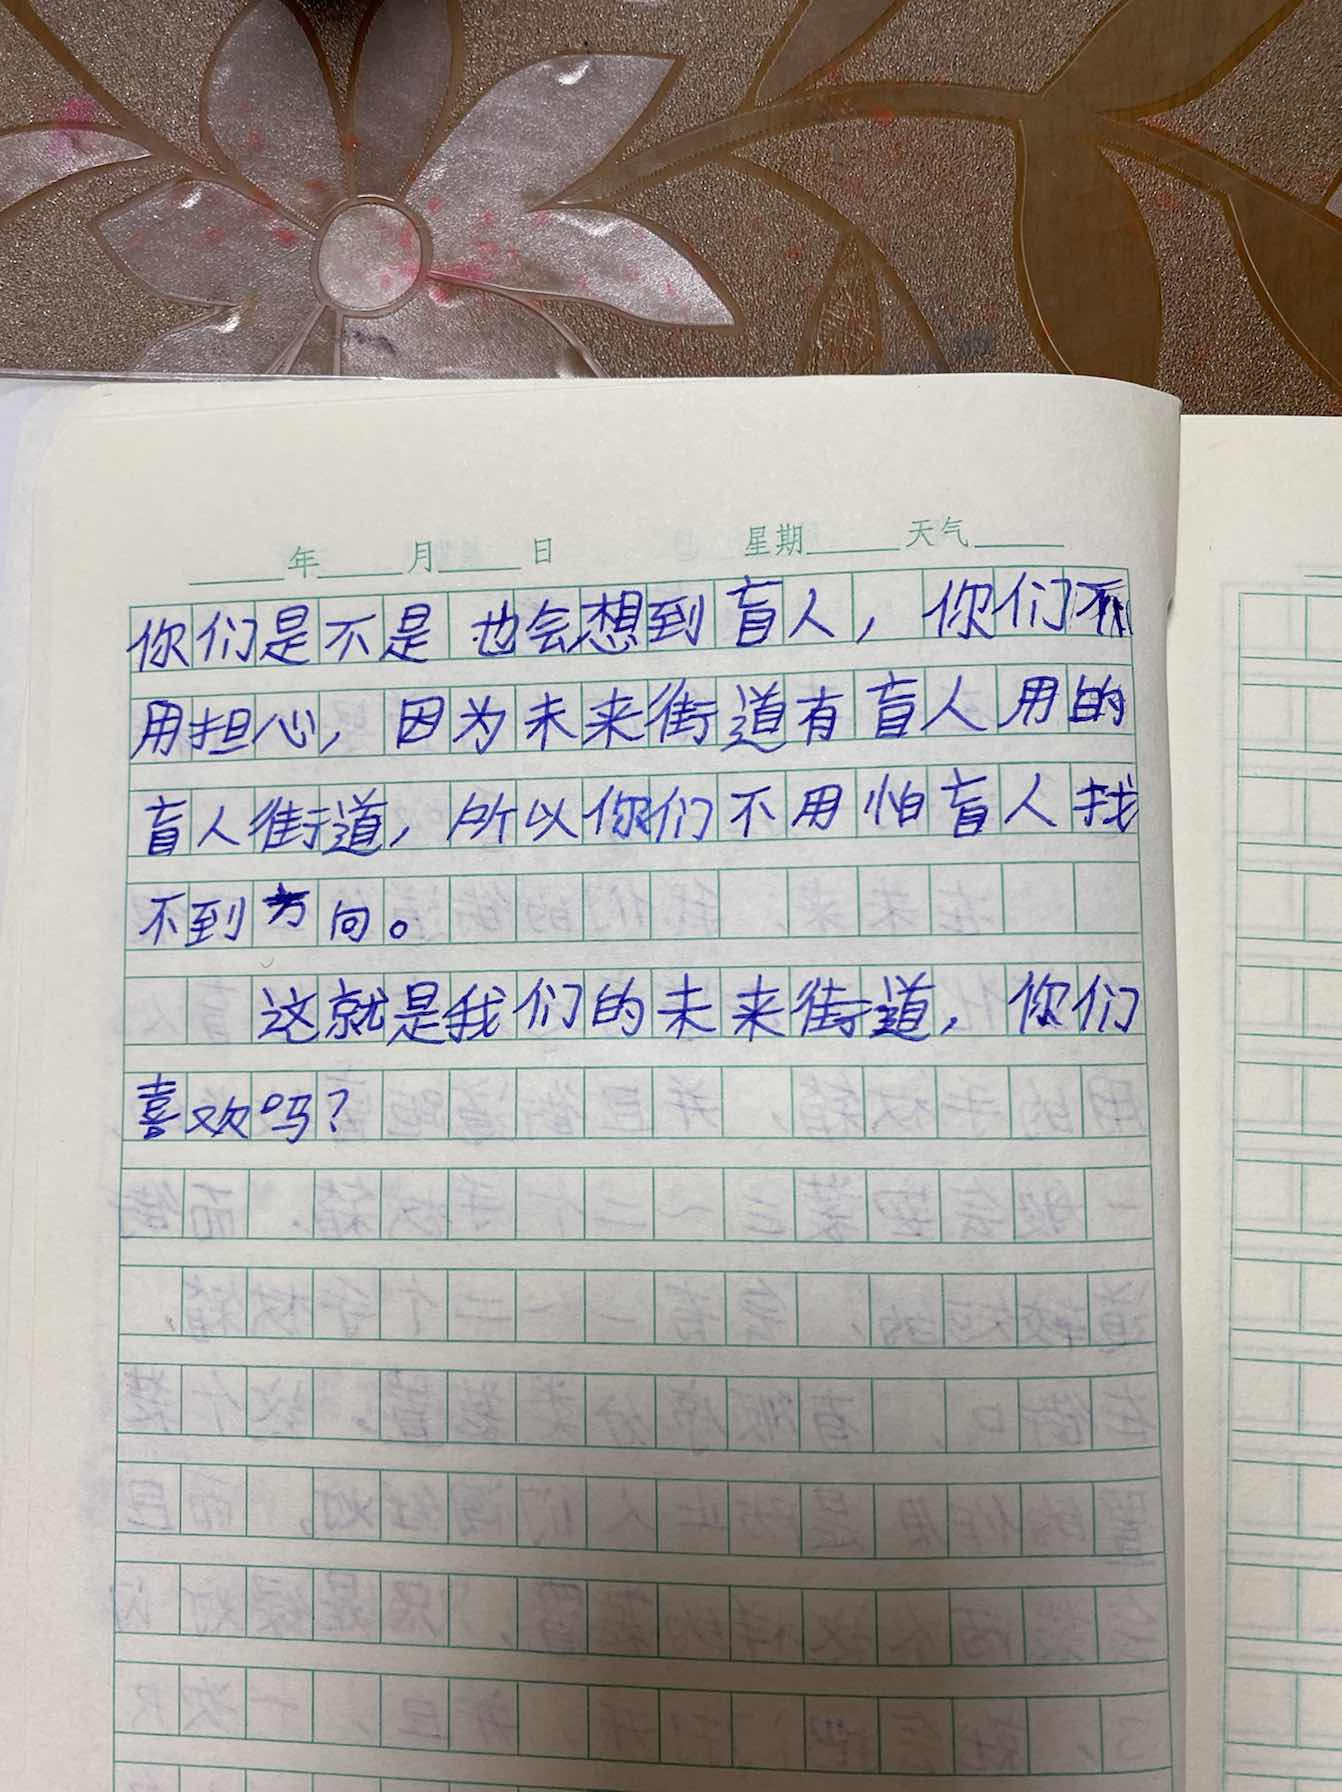 年 月 日 星期 天气
你们是不是也会想到盲人，你们不
用担心，因为未来街道有盲人用的
盲人街道，所以你们不用怕盲人找
不到方向。
这就是我们的未来街道，你们
喜欢吗？